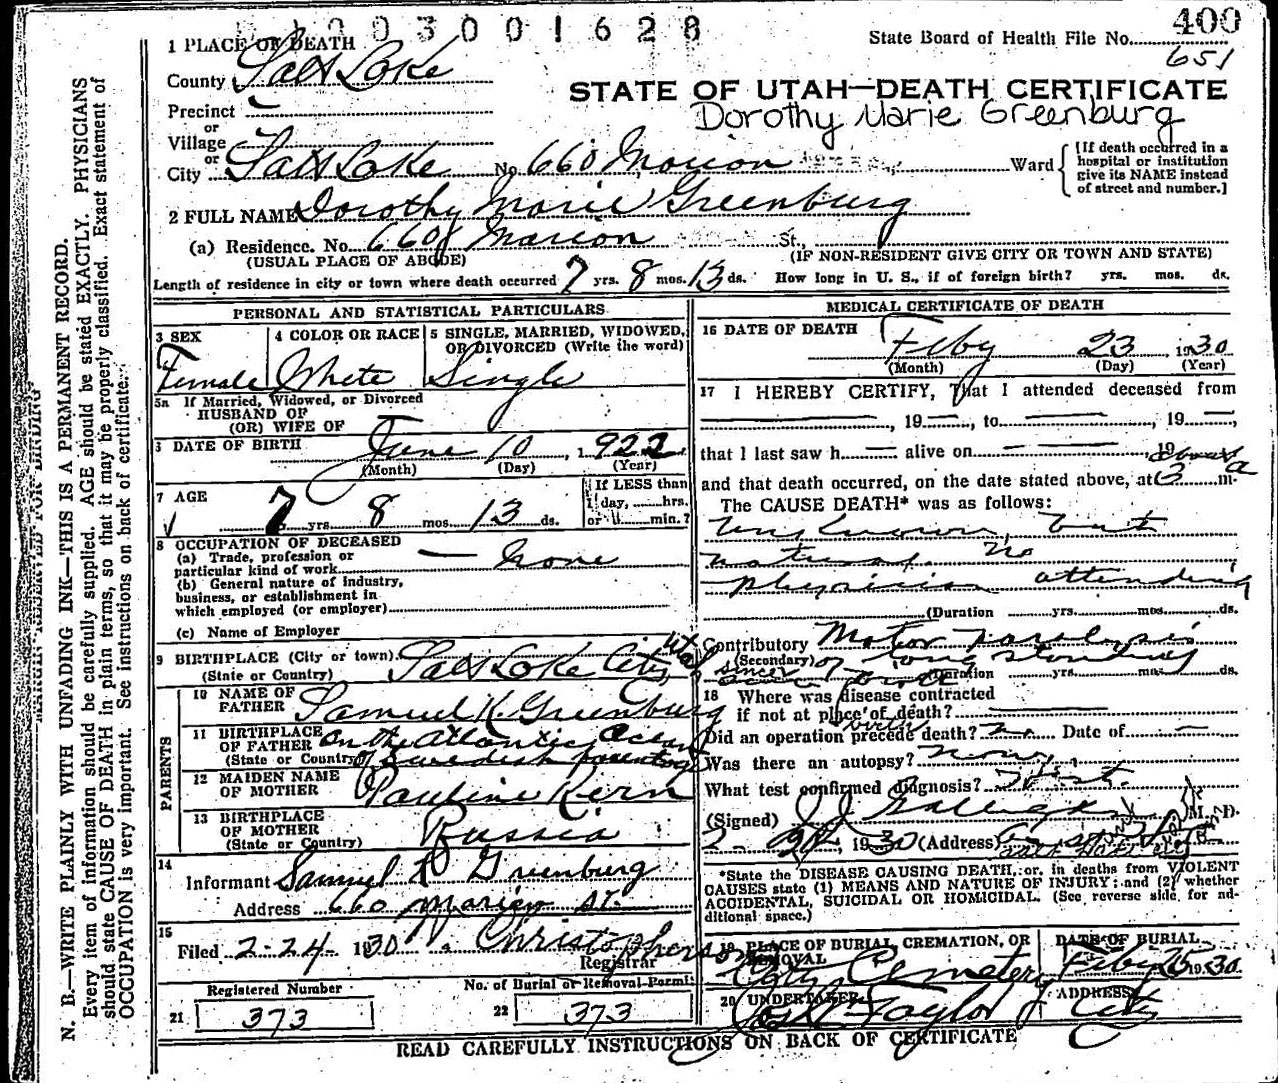 1003001628
400
State Board of Health File No.
651
1 PLACE OF DEATH
County Salt Lake
STATE OF UTAH—DEATH CERTIFICATE
Precinct
Dorothy Marie Greenburg
or
Village
or
City Salt Lake No. 660 Marion Ward
[If death occurred in a hospital or institution give its NAME instead of street and number.]
2 FULL NAME Dorothy Marie Greenburg
(a) Residence. No. 660 Marion St.,
(USUAL PLACE OF ABODE) (IF NON-RESIDENT GIVE CITY OR TOWN AND STATE)
Length of residence in city or town where death occurred 7 yrs. 8 mos. 13 ds. How long in U. S., if of foreign birth? yrs. mos. ds.
PERSONAL AND STATISTICAL PARTICULARS
3 SEX
Female
4 COLOR OR RACE
White
5 SINGLE, MARRIED, WIDOWED, OR DIVORCED (Write the word)
Single
5a If Married, Widowed, or Divorced
HUSBAND OF
(OR) WIFE OF
DATE OF BIRTH June 10, 1922
(Month) (Day) (Year)
7 AGE
7 yrs 8 mos. 13 ds.
If LESS than
1 day, hrs.
or min.?
8 OCCUPATION OF DECEASED
(a) Trade, profession or
particular kind of work None
(b) General nature of industry,
business, or establishment in
which employed (or employer)
(c) Name of Employer
9 BIRTHPLACE (City or town) Salt Lake City, Utah
(State or Country)
PARENTS
10 NAME OF FATHER Samuel K. Greenburg
11 BIRTHPLACE OF FATHER On the Atlantic Ocean
(State or Country) of Swedish parentage
12 MAIDEN NAME OF MOTHER Pauline Kern
13 BIRTHPLACE OF MOTHER Russia
(State or Country)
14
Informant Samuel K Greenburg
Address 660 Marion St.
15
Filed 2-24 1930 Christopherson
Registrar
Registered Number
21 373
No. of Burial or Removal Permit
22 373
MEDICAL CERTIFICATE OF DEATH
16 DATE OF DEATH
Feby 23, 1930
(Month) (Day) (Year)
17 I HEREBY CERTIFY, That I attended deceased from
, 19 , to , 19 ,
that I last saw h alive on 19
about
and that death occurred, on the date stated above, at 3 a m.
The CAUSE DEATH* was as follows:
Unknown, but
natural. No
physician attending
(Duration yrs. mos. ds.
Contributory Motor paralysis
(Secondary) of long standing
since birth
(Duration yrs. mos. ds.
18 Where was disease contracted
if not at place of death?
Did an operation precede death? no Date of
Was there an autopsy? none
What test confirmed diagnosis? Hist.
(Signed) M. D.
2 1930 (Address)
*State the DISEASE CAUSING DEATH, or, in deaths from VIOLENT
CAUSES state (1) MEANS AND NATURE OF INJURY; and (2) whether
ACCIDENTAL, SUICIDAL OR HOMICIDAL. (See reverse side for additional space.)
19 PLACE OF BURIAL, CREMATION, OR REMOVAL
City Cemetery
DATE OF BURIAL
Feby 25 1930
20 UNDERTAKER
Taylor
ADDRESS
City
READ CAREFULLY INSTRUCTIONS ON BACK OF CERTIFICATE
MARGIN RESERVED FOR BINDING
N. B.—WRITE PLAINLY WITH UNFADING INK—THIS IS A PERMANENT RECORD.
Every item of information should be carefully supplied. AGE should be stated EXACTLY. PHYSICIANS
should state CAUSE OF DEATH in plain terms, so that it may be properly classified. Exact statement of
OCCUPATION is very important. See instructions on back of certificate.